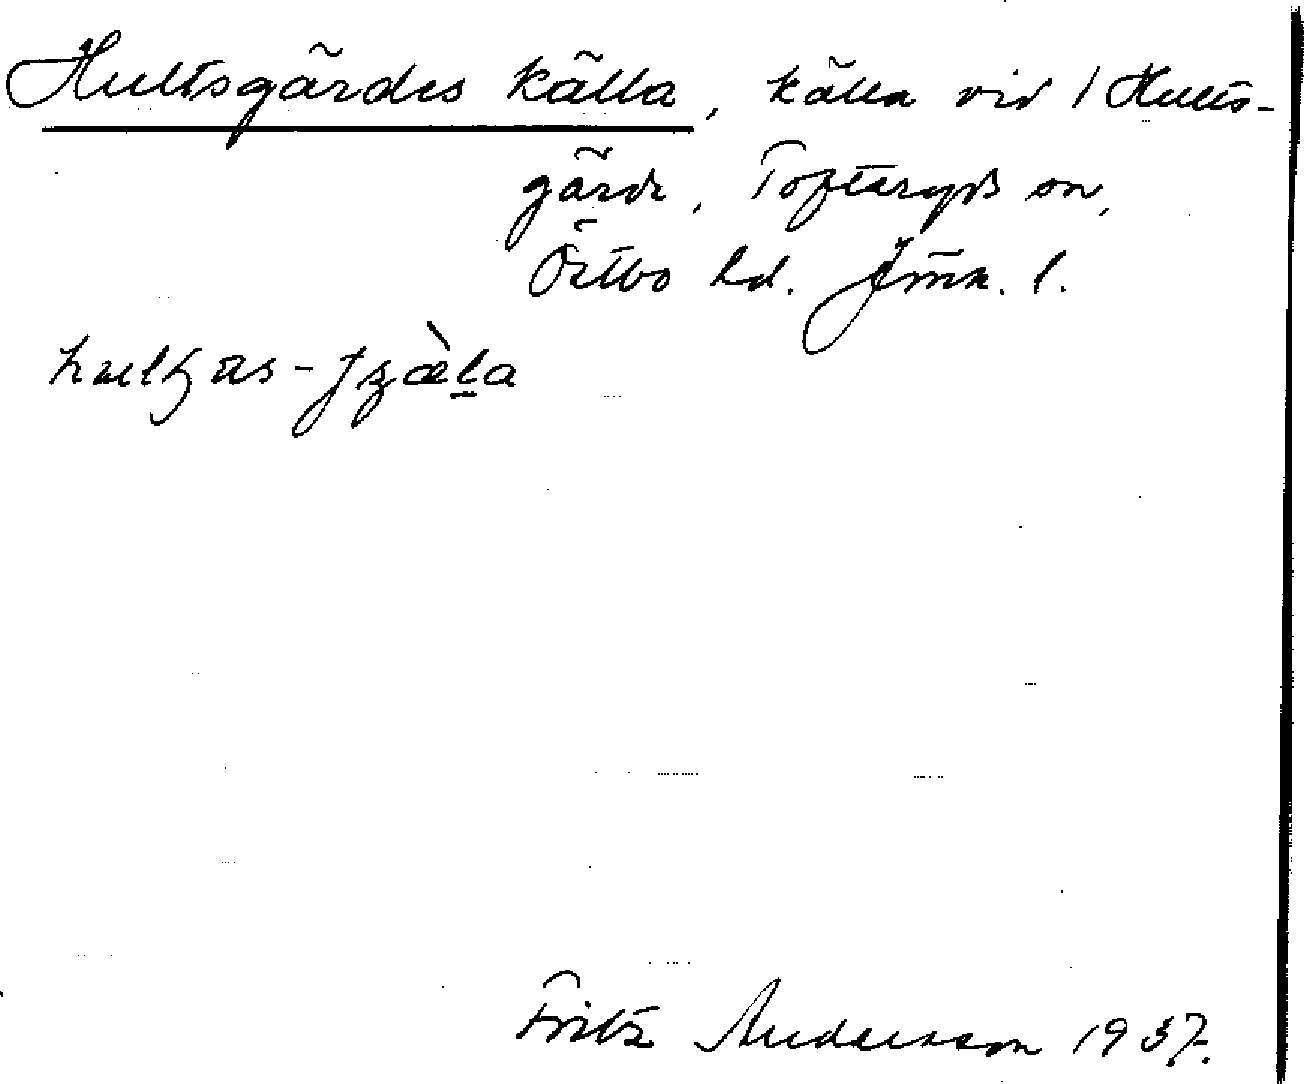 Hultsgärdes källa, källa vid / Hults-
gärde, Tofteryds sn,
Östbo hd. Jönk. l.
Fritz Andersson 1937.